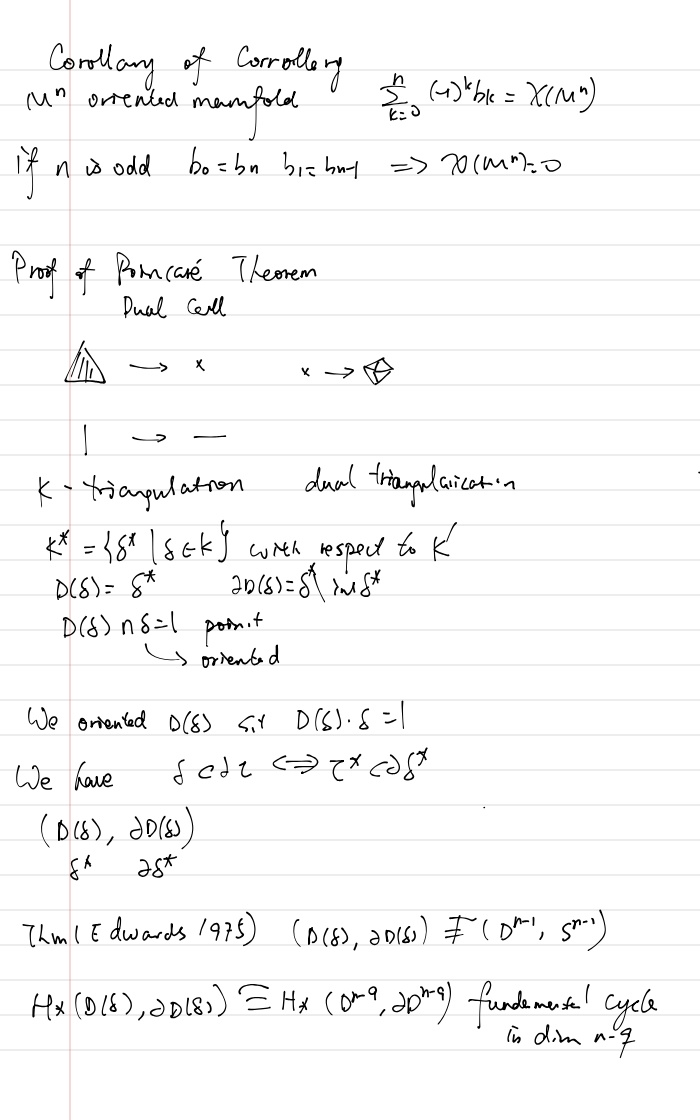 Corollary of Corrollery
Mⁿ oriented manifold ∑_{k=0}^{n} (-1)^k b_k = χ(Mⁿ)
If n is odd b₀ = bₙ b₁ = bₙ₋₁ => χ(Mⁿ) = 0
Proof of Poincaré Theorem
Dual Cell
→ x x →
| → —
K - triangulation dual triangularization
K* = {δ* | δ ∈ K} with respect to K'
D(δ) = δ* ∂D(δ) = δ* \ int δ*
D(δ) ∩ δ = 1 point
↳ oriented
We oriented D(δ) s.t D(δ)·δ = 1
We have δ ⊂ ∂τ <=> τ* ⊂ ∂δ*
(D(δ), ∂D(δ))
δ* ∂δ*
Thm (Edwards 1975) (D(δ), ∂D(δ)) ≇ (Dⁿ⁻¹, Sⁿ⁻¹)
H_*(D(δ), ∂D(δ)) ≅ H_*(D^{n-q}, ∂D^{n-q}) fundemental cycle
in dim n-q